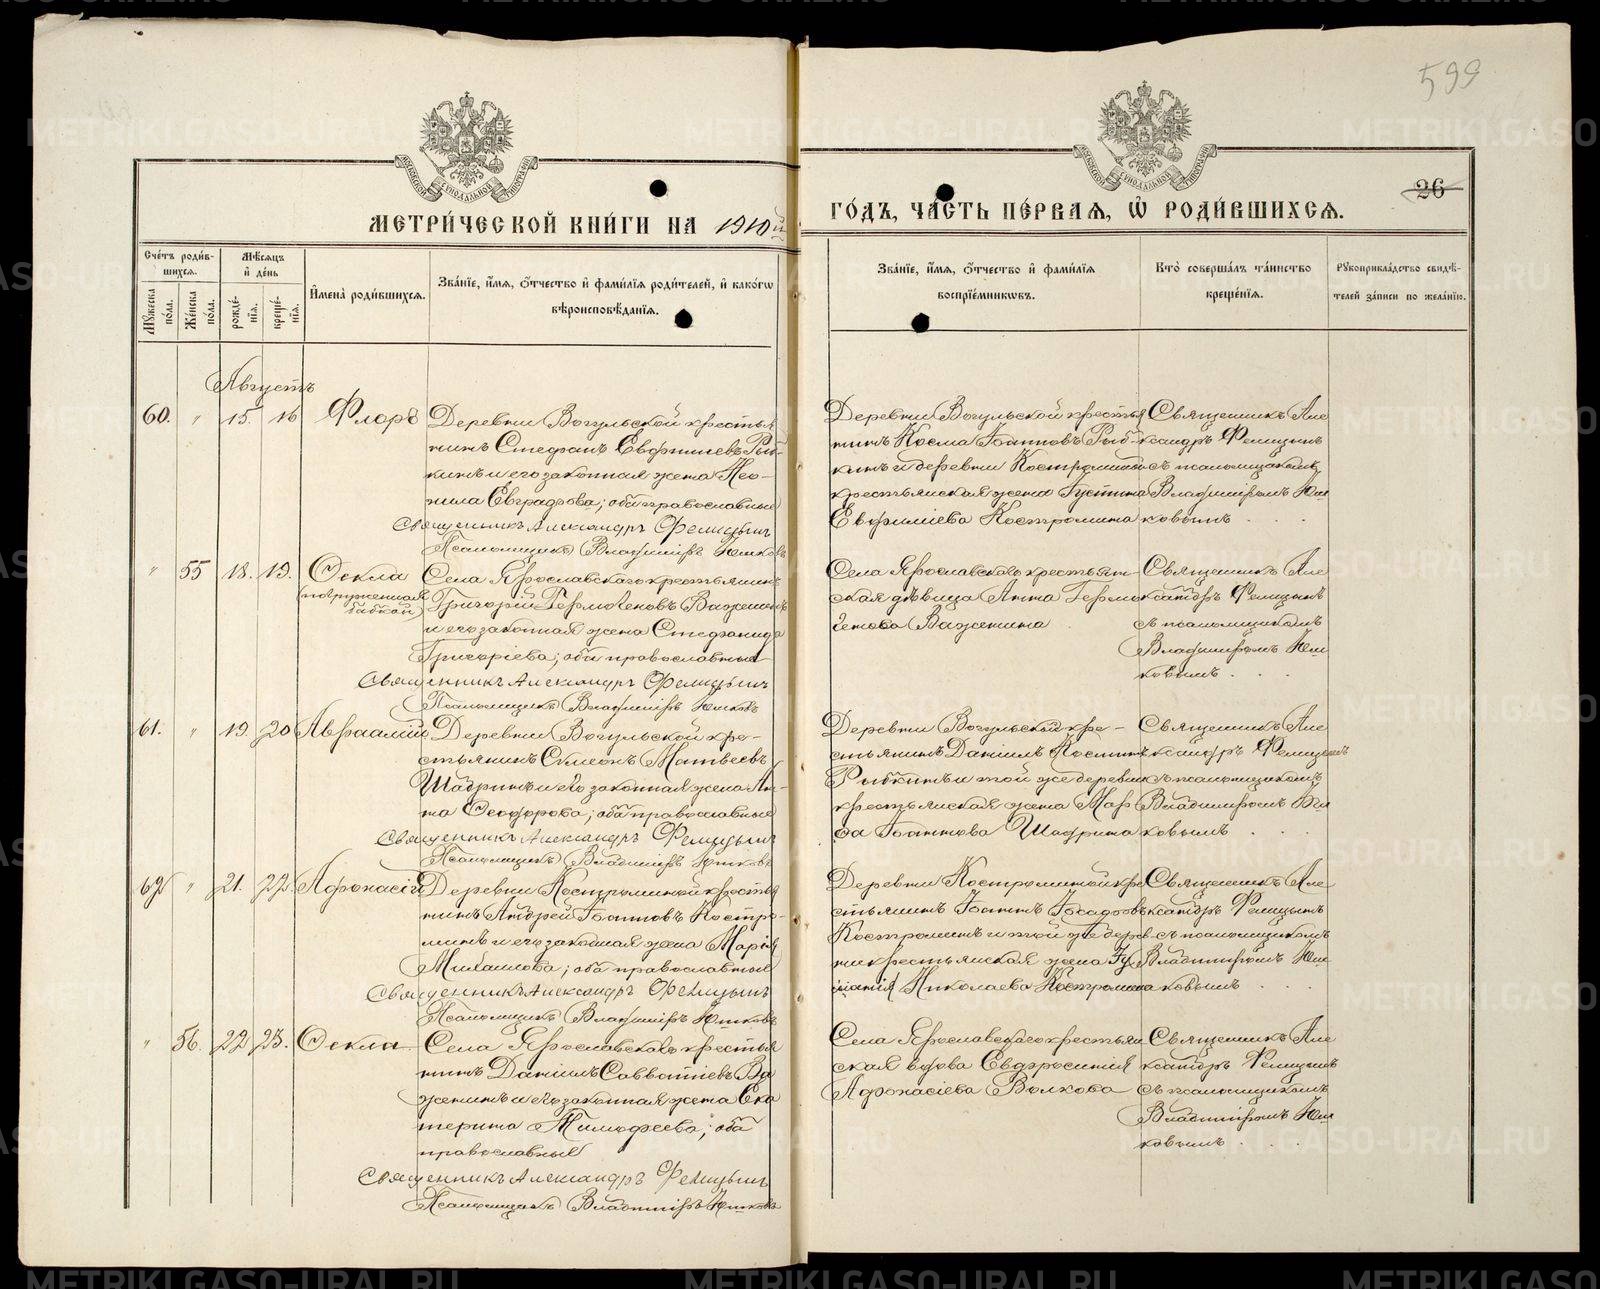 599
26
МЕТРИ́ЧЕСКОЙ КНИ́ГИ НА 1910й
ГО́ДЪ, ЧА́СТЬ ПЕ́РВАЯ, Ѡ҆ РОДИ́ВШИХСЯ.
Сче́тъ роди́вшихся.
Мѣ́сяцъ и҆ де́нь
Му́жеска по́ла.
Же́нска по́ла.
рожде́нїя.
креще́нїя.
И҆мена̀ роди́вшихся.
Зва́нїе, и҆́мя, ѻ҆́тчество и҆ фами́лїя роди́телей, и҆ како́гѡ
вѣроисповѣ́данїя.
Зва́нїе, и҆́мя, ѻ҆́тчество и҆ фами́лїя
воспрїе́мникѡвъ.
Кто̀ соверша́лъ та́инство
креще́нїя.
Рукоприкла́дство свидѣ́-
телей за́писи по жела́нїю.
Августъ
60. " 15. 16 Флоръ
Деревни Вогульской крестья
нинъ Стефанъ Евфимiевъ Рыб-
кинъ и его законная жена Нео-
нила Евградрова; оба православные
Священникъ Александръ Фелицынъ
Псаломщикъ Владимiръ Юшковъ
Деревни Вогульской крестья
нинъ Косма Iоанновъ Рыб-
кинъ и деревни Костроминой
крестьянская жена Iустина
Евфимiева Костромина
Священникъ Але
ксандръ Фелицынъ
съ псаломщикомъ
Владимiромъ Юш
ковымъ . . .
" 55 18. 19. Ѳекла
(погруженная
бабкой)
Села Ярославскаго крестьянинъ
Григорiй Гермогеновъ Важенинъ
и его законная жена Стефанида
Григорiева; оба православные
Священникъ Александръ Фелицынъ
Псаломщикъ Владимiръ Юшковъ
Села Ярославскаго крестьян-
ская дѣвица Анна Гермо
генова Важенина
Священникъ Але
ксандръ Фелицынъ
съ псаломщикомъ
Владимiромъ Юш
ковымъ . . .
61. " 19. 20 Авраамiй
Деревни Вогульской кре-
стьянинъ Симеонъ Матвеевъ
Шадринъ и его законная жена Ан-
на Ѳеодорова; оба православные
Священникъ Александръ Фелицынъ
Псаломщикъ Владимiръ Юшковъ
Деревни Вогульской кре-
стьянинъ Данiилъ Косминъ
Рыбкинъ и той же деревни
крестьянская жена Мар
ѳа Iоаннова Шадрина
Священникъ Але
ксандръ Фелицынъ
съ псаломщикомъ
Владимiромъ Юш
ковымъ . . .
62 " 21. 22. Афонасiй
Деревни Костроминой крестья
нинъ Андрей Iоанновъ Костро-
минъ и его законная жена Марiя
Михаилова; оба православные
Священникъ Александръ Фелицынъ
Псаломщикъ Владимiръ Юшковъ
Деревни Костроминой кре
стьянинъ Iоаннъ
Костроминъ и той же дерев-
ни крестьянская жена
Николаева Костромина
Священникъ Але
ксандръ Фелицынъ
съ псаломщикомъ
Владимiромъ Юш
ковымъ . . .
" 56. 22 23. Ѳекла
Села Ярославскаго крестья
нинъ Данiилъ Савватiевъ Ва
женинъ и его законная жена Ека
терина Тимофеева; оба
православные
Священникъ Александръ Фелицынъ
Псаломщикъ Владимiръ Юшковъ
Села Ярославскаго крестьян
ская вдова Евфросинiя
Афонасiева Волкова
Священникъ Але
ксандръ Фелицынъ
съ псаломщикомъ
Владимiромъ Юш
ковымъ . . .
METRIKI.GASO-URAL.RU